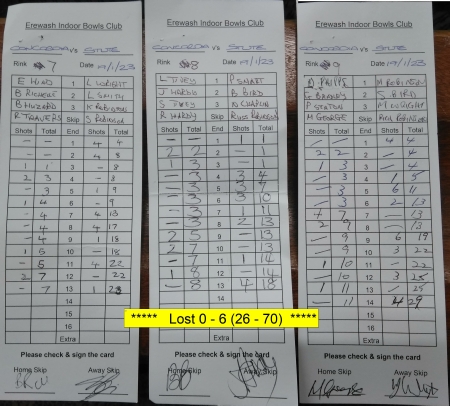 Erewash Indoor Bowls Club
CONCORDIA vs SPLITE
Rink #7 Date 19/1/23
E HIND 1 L WRIGHT
B RICHENT 2 L SMITH
B HUZARD 3 K ROBINSON
R TRAVERS Skip S ROBINSON
Shots Total End Shots Total
— — 1 4 4
— — 2 4 8
1 1 3 — 8
2 3 4 — 8
— 3 5 1 9
1 4 6 — 9
— 4 7 4 13
— 4 8 4 17
— 4 9 1 18
1 5 10 — 18
— 5 11 4 22
2 7 12 — 22
— 7 13 1 23
14
15
16
Extra
Please check & sign the card
Home Skip Away Skip
Erewash Indoor Bowls Club
CONCORDIA vs
Rink #8 Date 19/1/23
L TIVEY 1 P SMART
J HARDY 2 B BIRD
S TIVEY 3 N CHAPLIN
R HARDY Skip RUSS ROBINSON
Shots Total End Shots Total
— — 1 1 1
2 2 2 — 1
1 3 3 — 1
— 3 4 3 4
— 3 5 3 7
— 3 6 3 10
— 3 7 1 11
— 3 8 2 13
2 5 9 — 13
2 7 10 — 13
— 7 11 1 14
1 8 12 — 14
— 8 13 4 18
14
Extra
Please check & sign the card
Home Skip Away Skip
Erewash Indoor Bowls Club
CONCORDIA vs
Rink #9 Date 19/1/23
PHIPPS 1 M ROBINSON
2 S BIRD
P STATON 3 M WRIGHT
M GEORGE Skip
Shots Total End Shots Total
— — 1 4 4
2 2 2 — 4
1 3 3 — 4
— 3 4 1 5
— 3 5 6 11
— 3 6 2 13
4 7 7 — 13
2 9 8 — 13
— 9 9 6 19
— 9 10 3 22
1 10 11 — 22
— 10 12 3 25
1 11 13 — 25
— 11 14 4 29
15
16
Extra
Please check & sign the card
Home Skip Away Skip
***** Lost 0 - 6 (26 - 70) *****